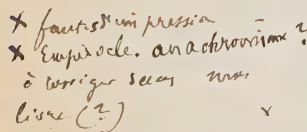 × fautes d'impression
× Empédocle. anachronisme ?
à corriger dans mon
livre (?)